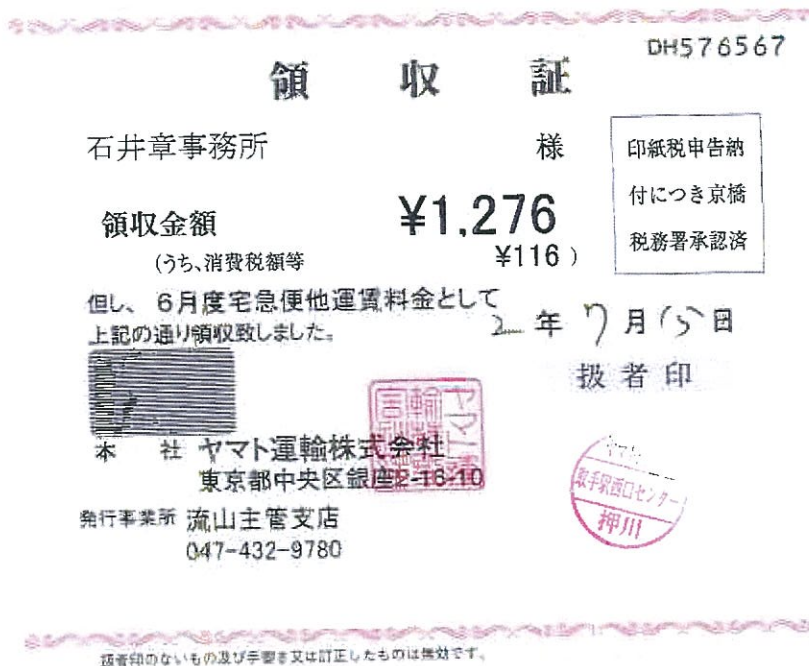 DH576567
領収証
石井章事務所 様
印紙税申告納
付につき京橋
税務署承認済
領収金額 ¥1,276
(うち、消費税額等 ¥116)
但し、6月度宅急便他運賃料金として
上記の通り領収致しました。
2年7月15日
扱者印
本社 ヤマト運輸株式会社
東京都中央区銀座2-16-10
発行事業所 流山主管支店
047-432-9780
ヤマト
取手駅西口センター
押川
扱者印のないもの及び手書き又は訂正したものは無効です。